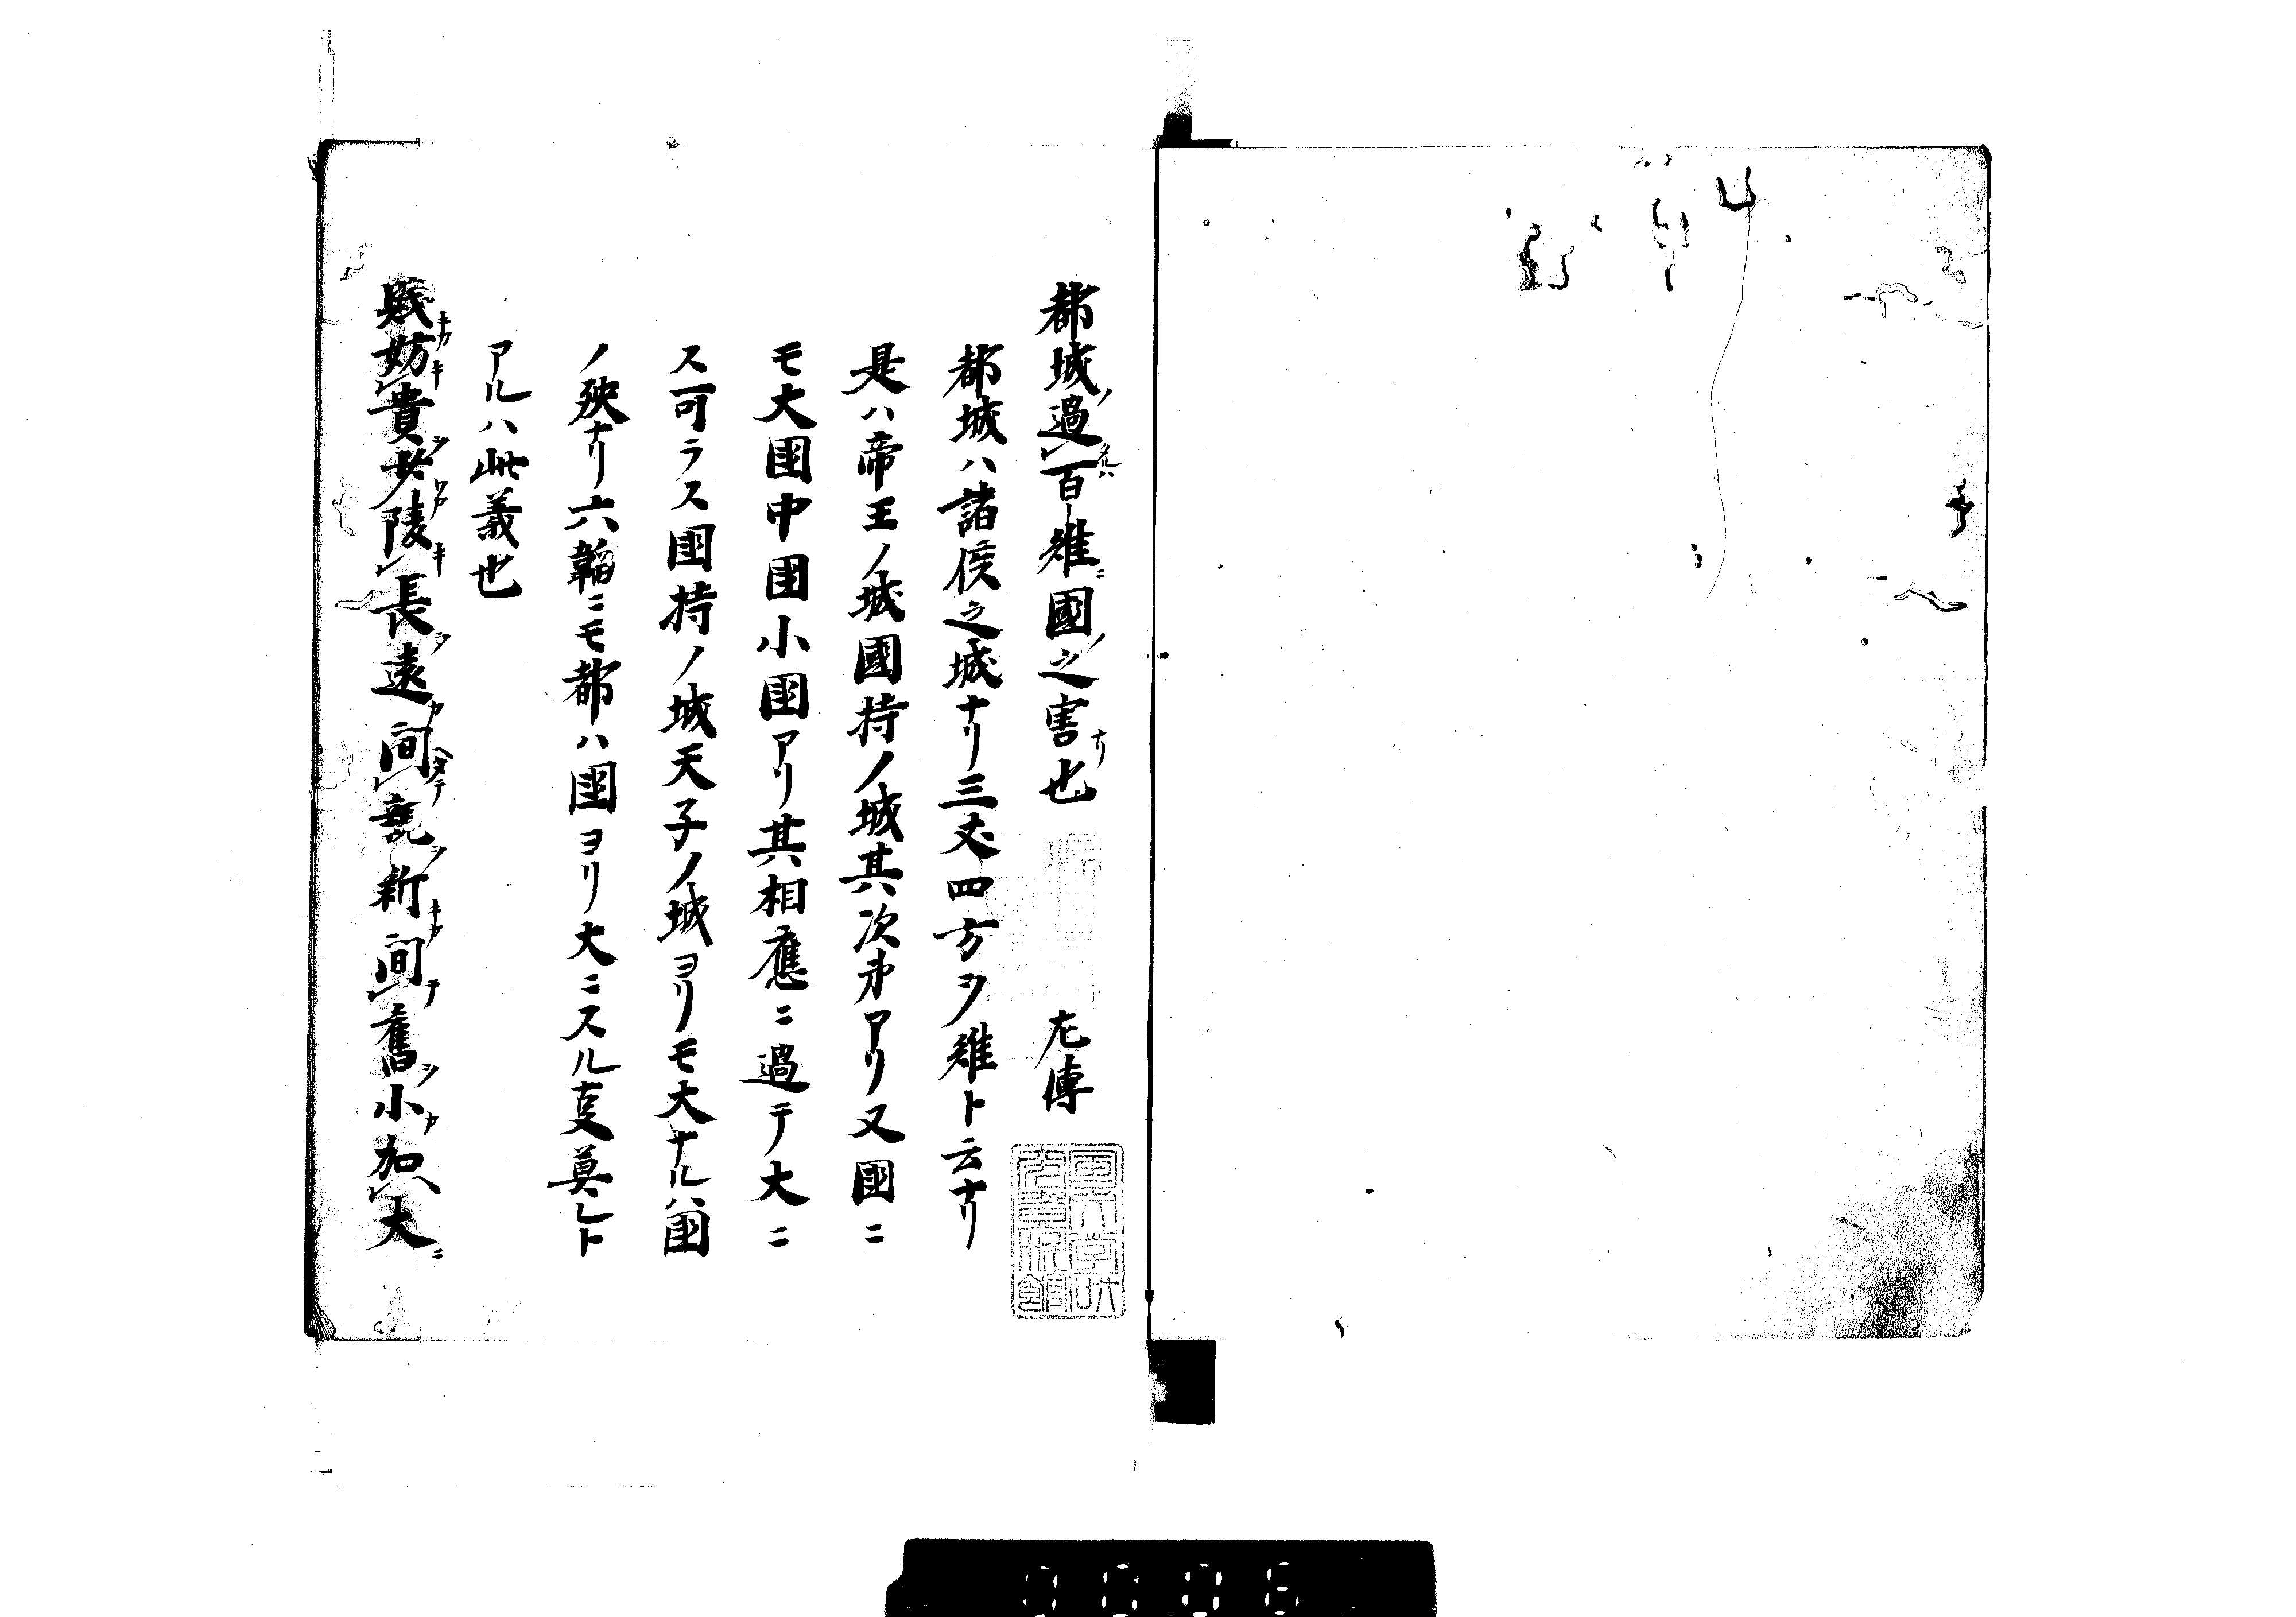 都城ノ過レ百雉ニ國ノ之害ナリ也 左傳
都城ハ諸侯之城ナリ三丈四方ヲ雉ト云ナリ
是ハ帝王ノ城國持ノ城其次第アリ又國ニ
モ大国中国小国アリ其相應ニ過テ大ニ
ス可ラス国持ノ城天子ノ城ヨリモ大ナルハ国
ノ殃ナリ六韜ニモ都ハ国ヨリ大ニスル叓莫レト
アルハ此義也
賤妨レ貴少陵レ長遠間レ親新間レ舊小加レ大